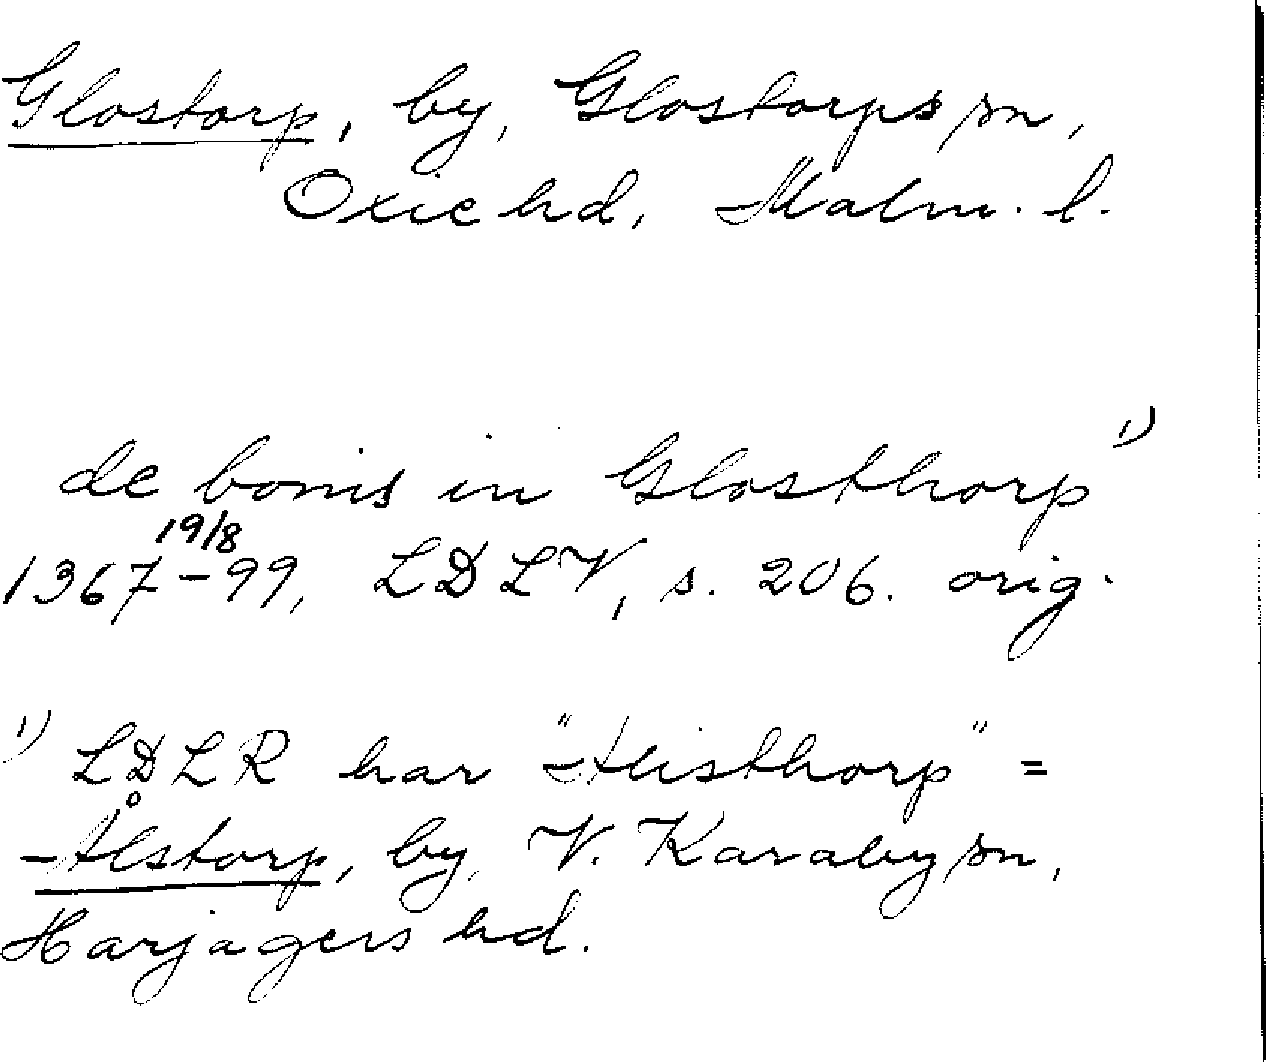 Glostorp, by, Glostorps sn,
Oxie hd, Malm. l.
de bonis in Glosthorp 1)
19/8
1367-99, LDLV, s. 206. orig.
1) LDLR har "Alisthorp" =
Ålstorp, by, V. Karaby sn,
Harjagers hd.